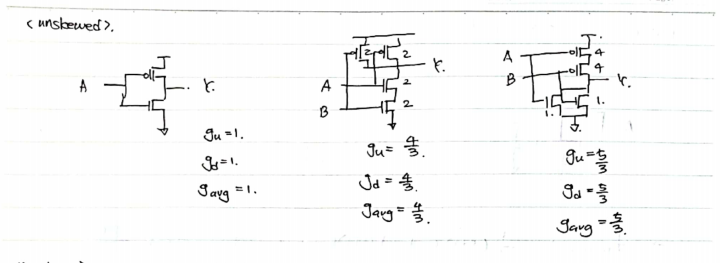 <unskewed>.
A
Y.
gu = 1.
gd = 1.
gavg = 1.
2 2
Y.
A 2
B 2
gu = 4/3.
gd = 4/3.
gavg = 4/3.
A 4
B 4
Y.
1. 1.
gu = 5/3
gd = 5/3
gavg = 5/3.